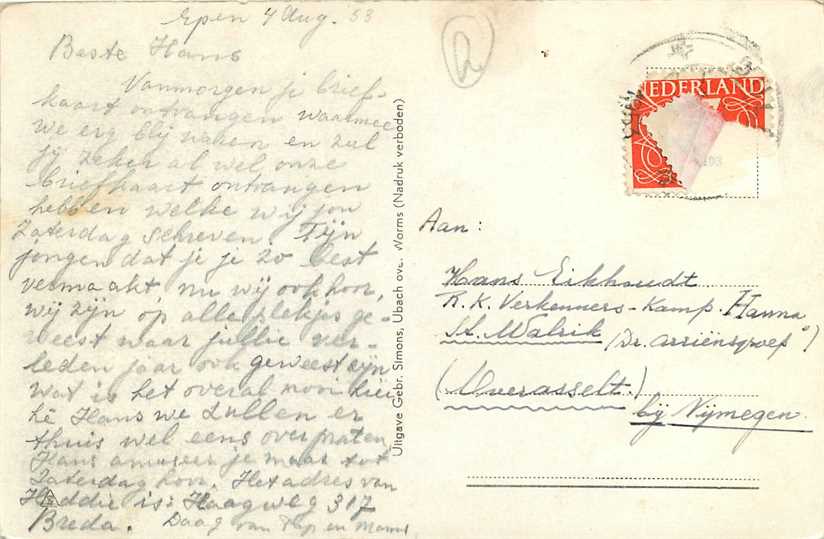 Epen 4 Aug. '53
Beste Hans
Vanmorgen je brief-
kaart ontvangen waarmee
we erg blij waren en zul
jij zeker al wel onze
briefkaart ontvangen
hebben welke wij jou
Zaterdag schreven. Fijn
jongen dat je je zo best
vermaakt nu wij ook hoor,
wij zijn op alle plekjes ge-
weest waar jullie ver-
leden jaar ook geweest zijn
wat is het overal mooi hier
hè Hans we zullen er
thuis wel eens over praten,
Hans amuseer je maar tot
Zaterdag hoor. Het adres van
is: Haagweg 317
Breda. Daag van Pap en Mams.
Uitgave Gebr. Simons, Ubach over Worms (Nadruk verboden)
a
NEDERLAND
Aan:
Hans Eikhoudt
R.K. Verkenners-Kamp
St. Walrik (Dr. Ariënsgroep)
(Overasselt.)
bij Nijmegen.